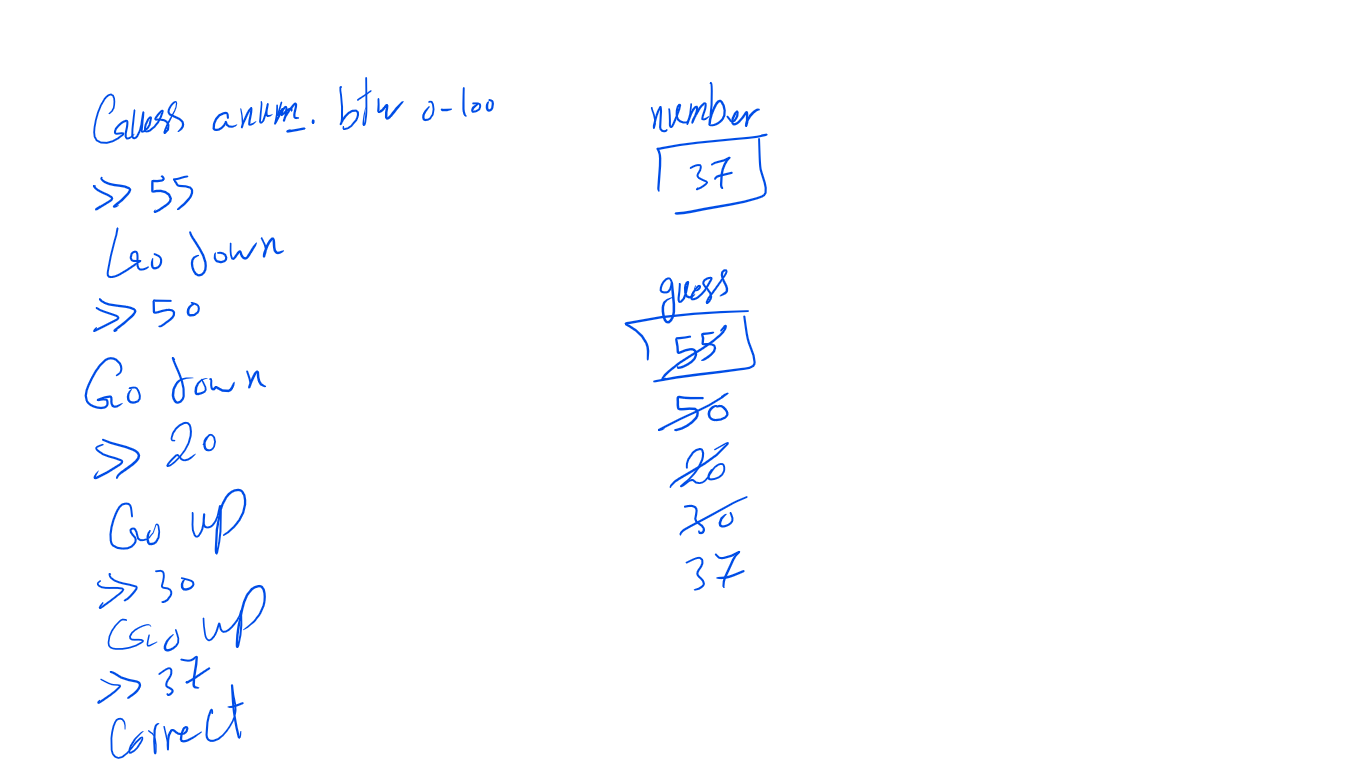 Guess a num. btw 0-100
>> 55
Go down
>> 50
Go down
>> 20
Go up
>> 30
Go up
>> 37
Correct
number
37
guess
55
50
20
30
37